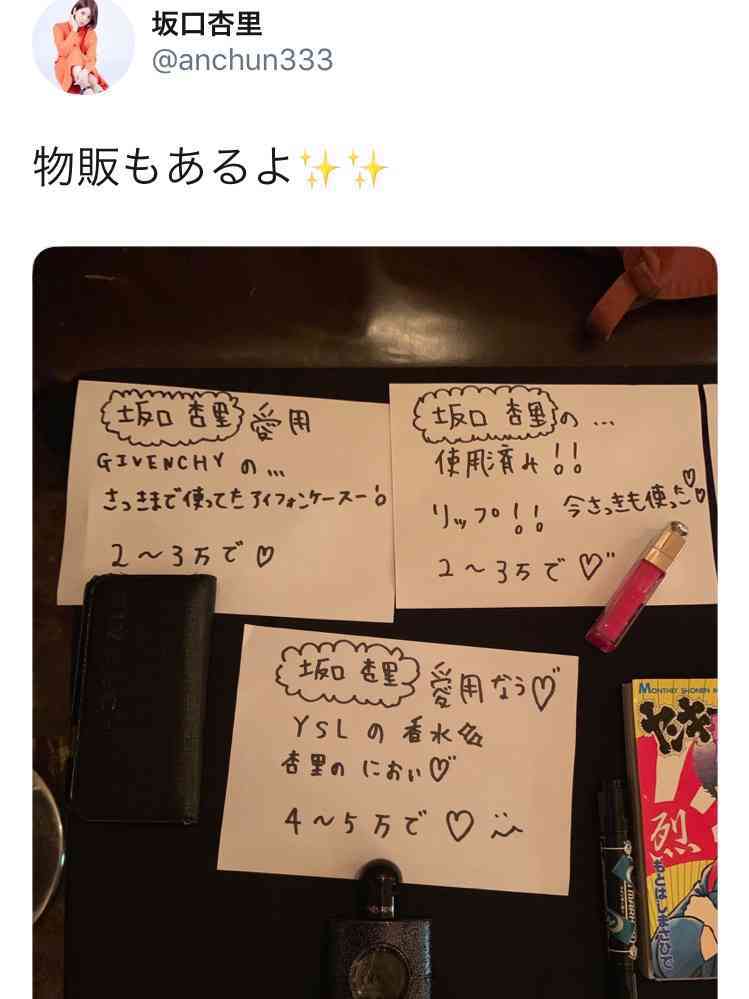 坂口杏里
@anchun333
物販もあるよ✨✨
坂口 杏里 愛用
GIVENCHY の...
さっきまで使ってたアイフォンケースー!
2〜3万で♡
坂口 杏里の...
使用済み!!
リップ!! 今さっきも使った♡♡
2〜3万で♡
坂口 杏里 愛用なう♡
YSLの香水
杏里のにおい♡
4〜5万で♡
MONTHLY SHONEN
ヤンキ
烈